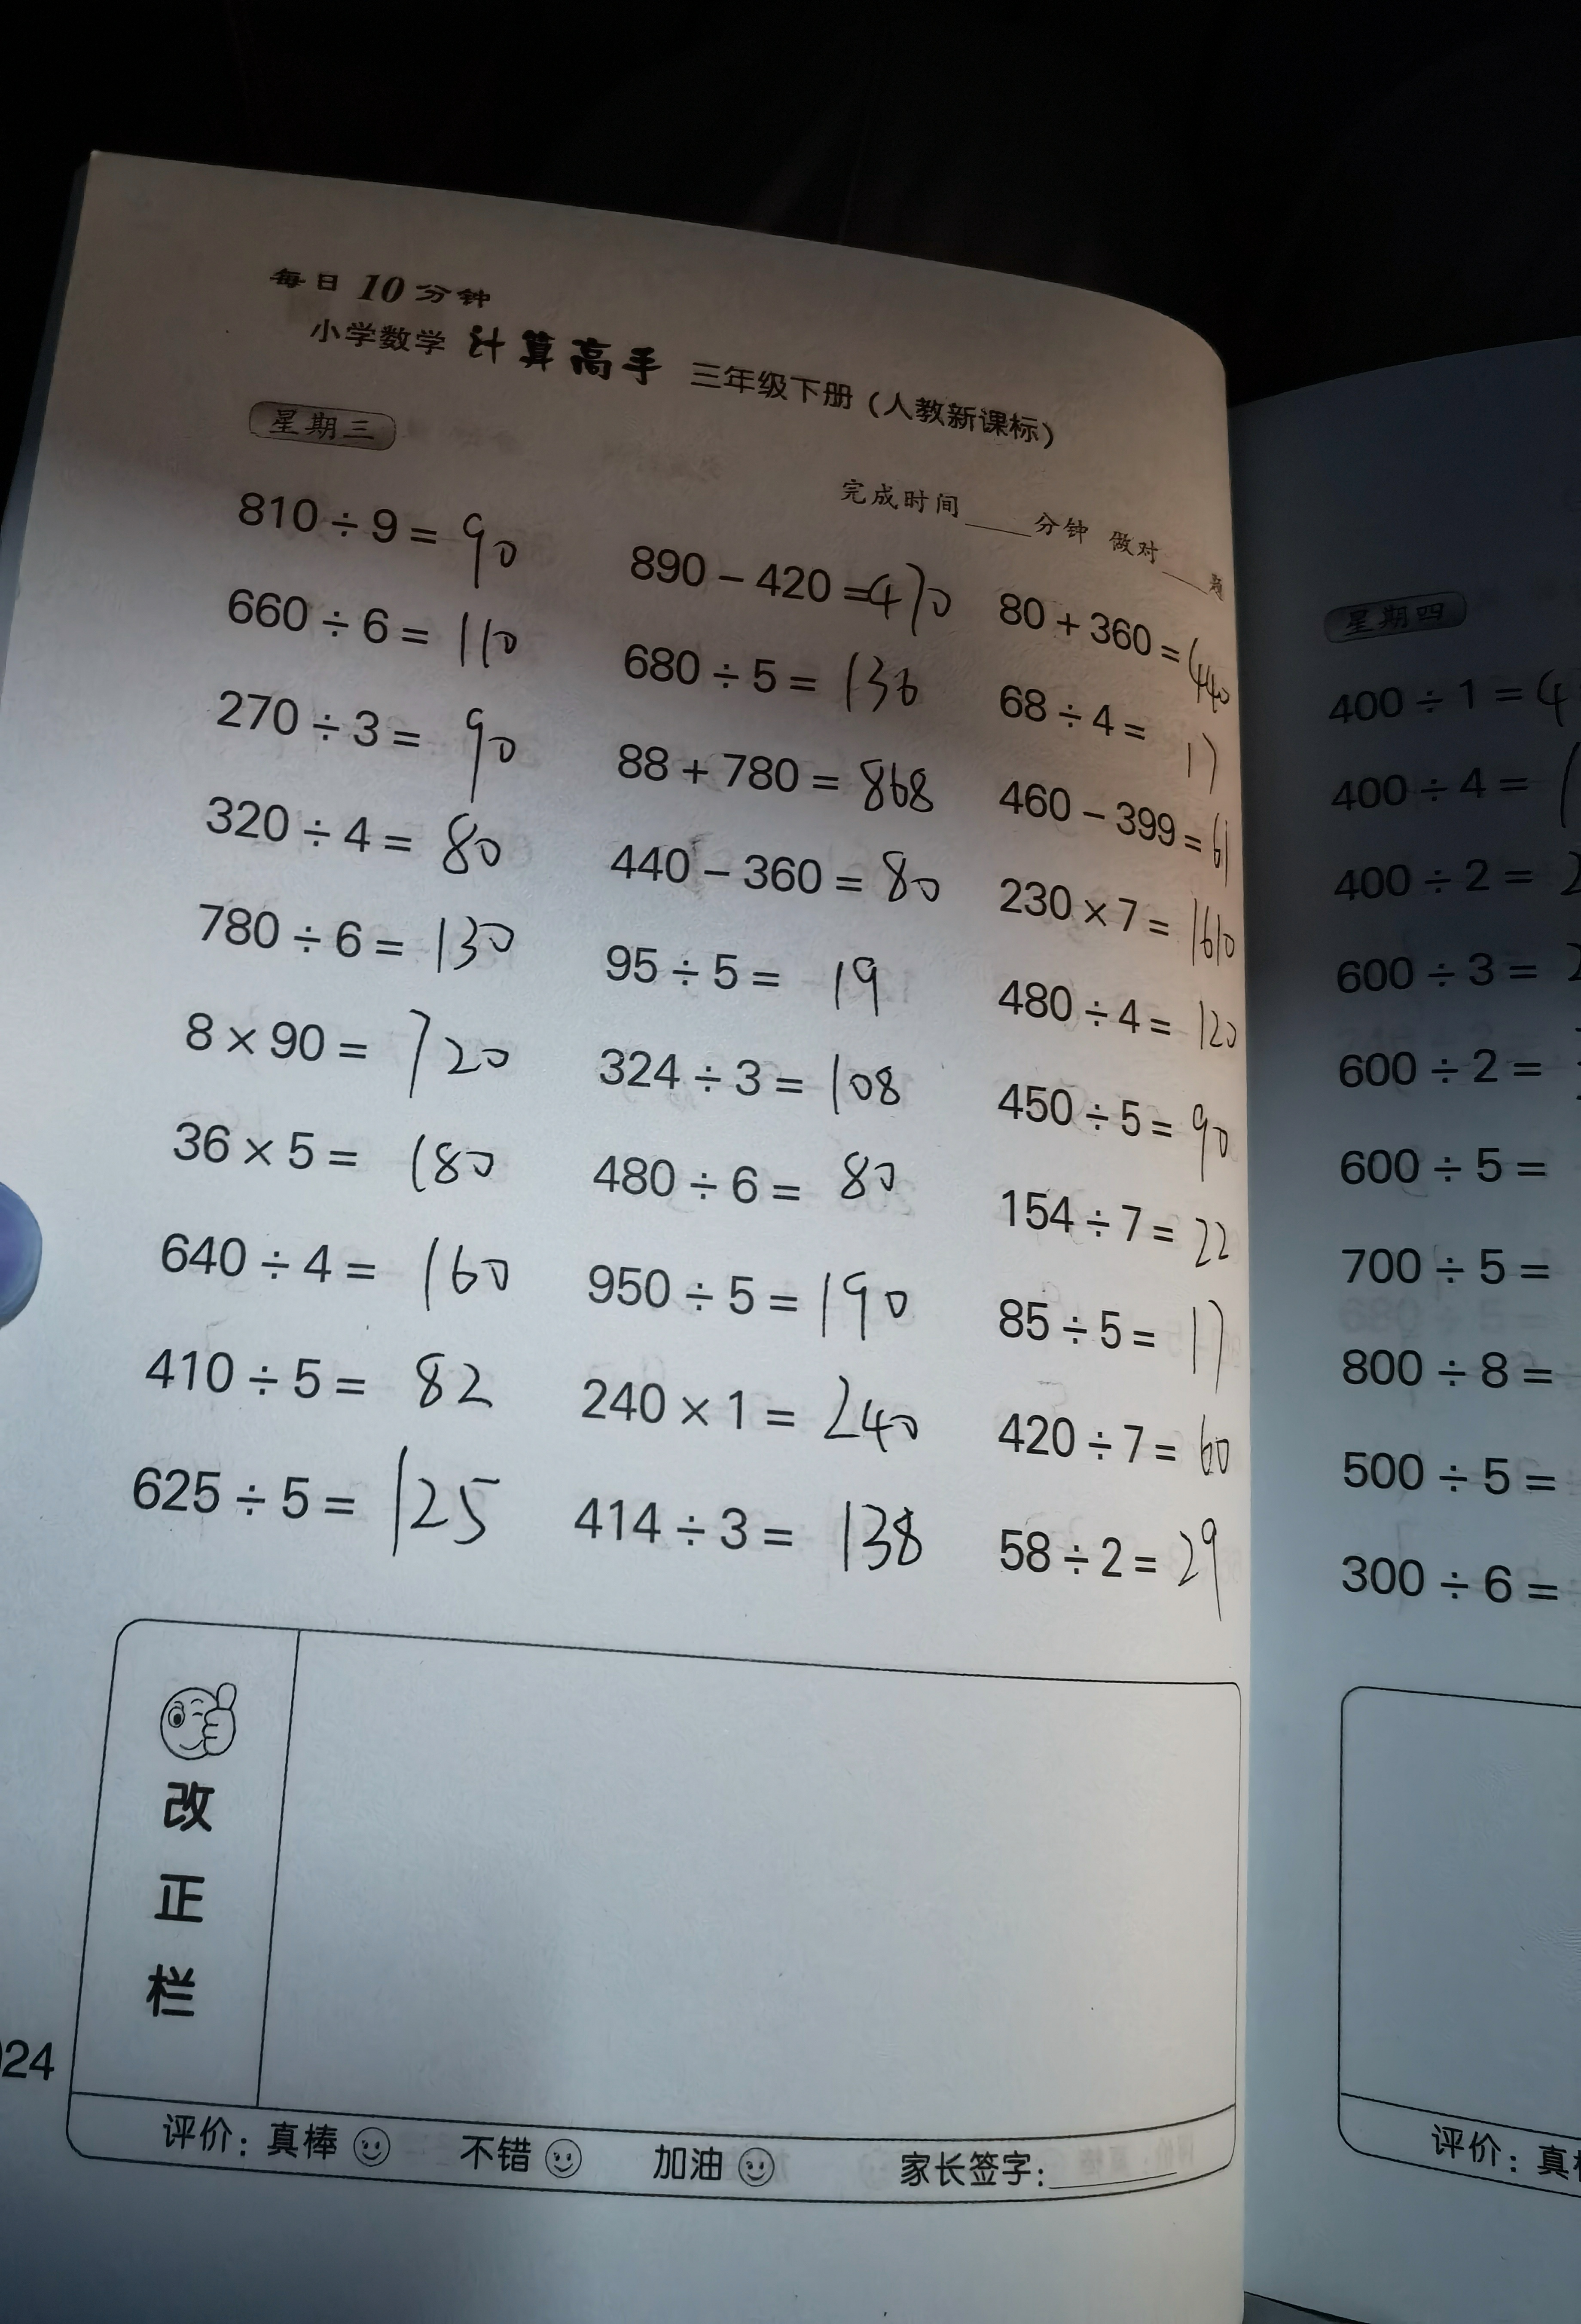 每日10分钟
小学数学 计算高手 三年级下册(人教新课标)
星期三
完成时间____分钟 做对____题
810÷9= 90
660÷6= 110
270÷3= 90
320÷4= 80
780÷6= 130
8×90= 720
36×5= 180
640÷4= 160
410÷5= 82
625÷5= 125
890-420=470
680÷5= 136
88+780= 868
440-360= 80
95÷5= 19
324÷3= 108
480÷6= 80
950÷5= 190
240×1= 240
414÷3= 138
80+360=440
68÷4= 17
460-399=61
230×7= 1610
480÷4= 120
450÷5= 90
154÷7= 22
85÷5= 17
420÷7= 60
58÷2= 29
改正栏
评价:真棒 不错 加油 家长签字:____
24
星期四
400÷1=4
400÷4=
400÷2=2
600÷3=2
600÷2=
600÷5=
700÷5=
800÷8=
500÷5=
300÷6=
评价:真